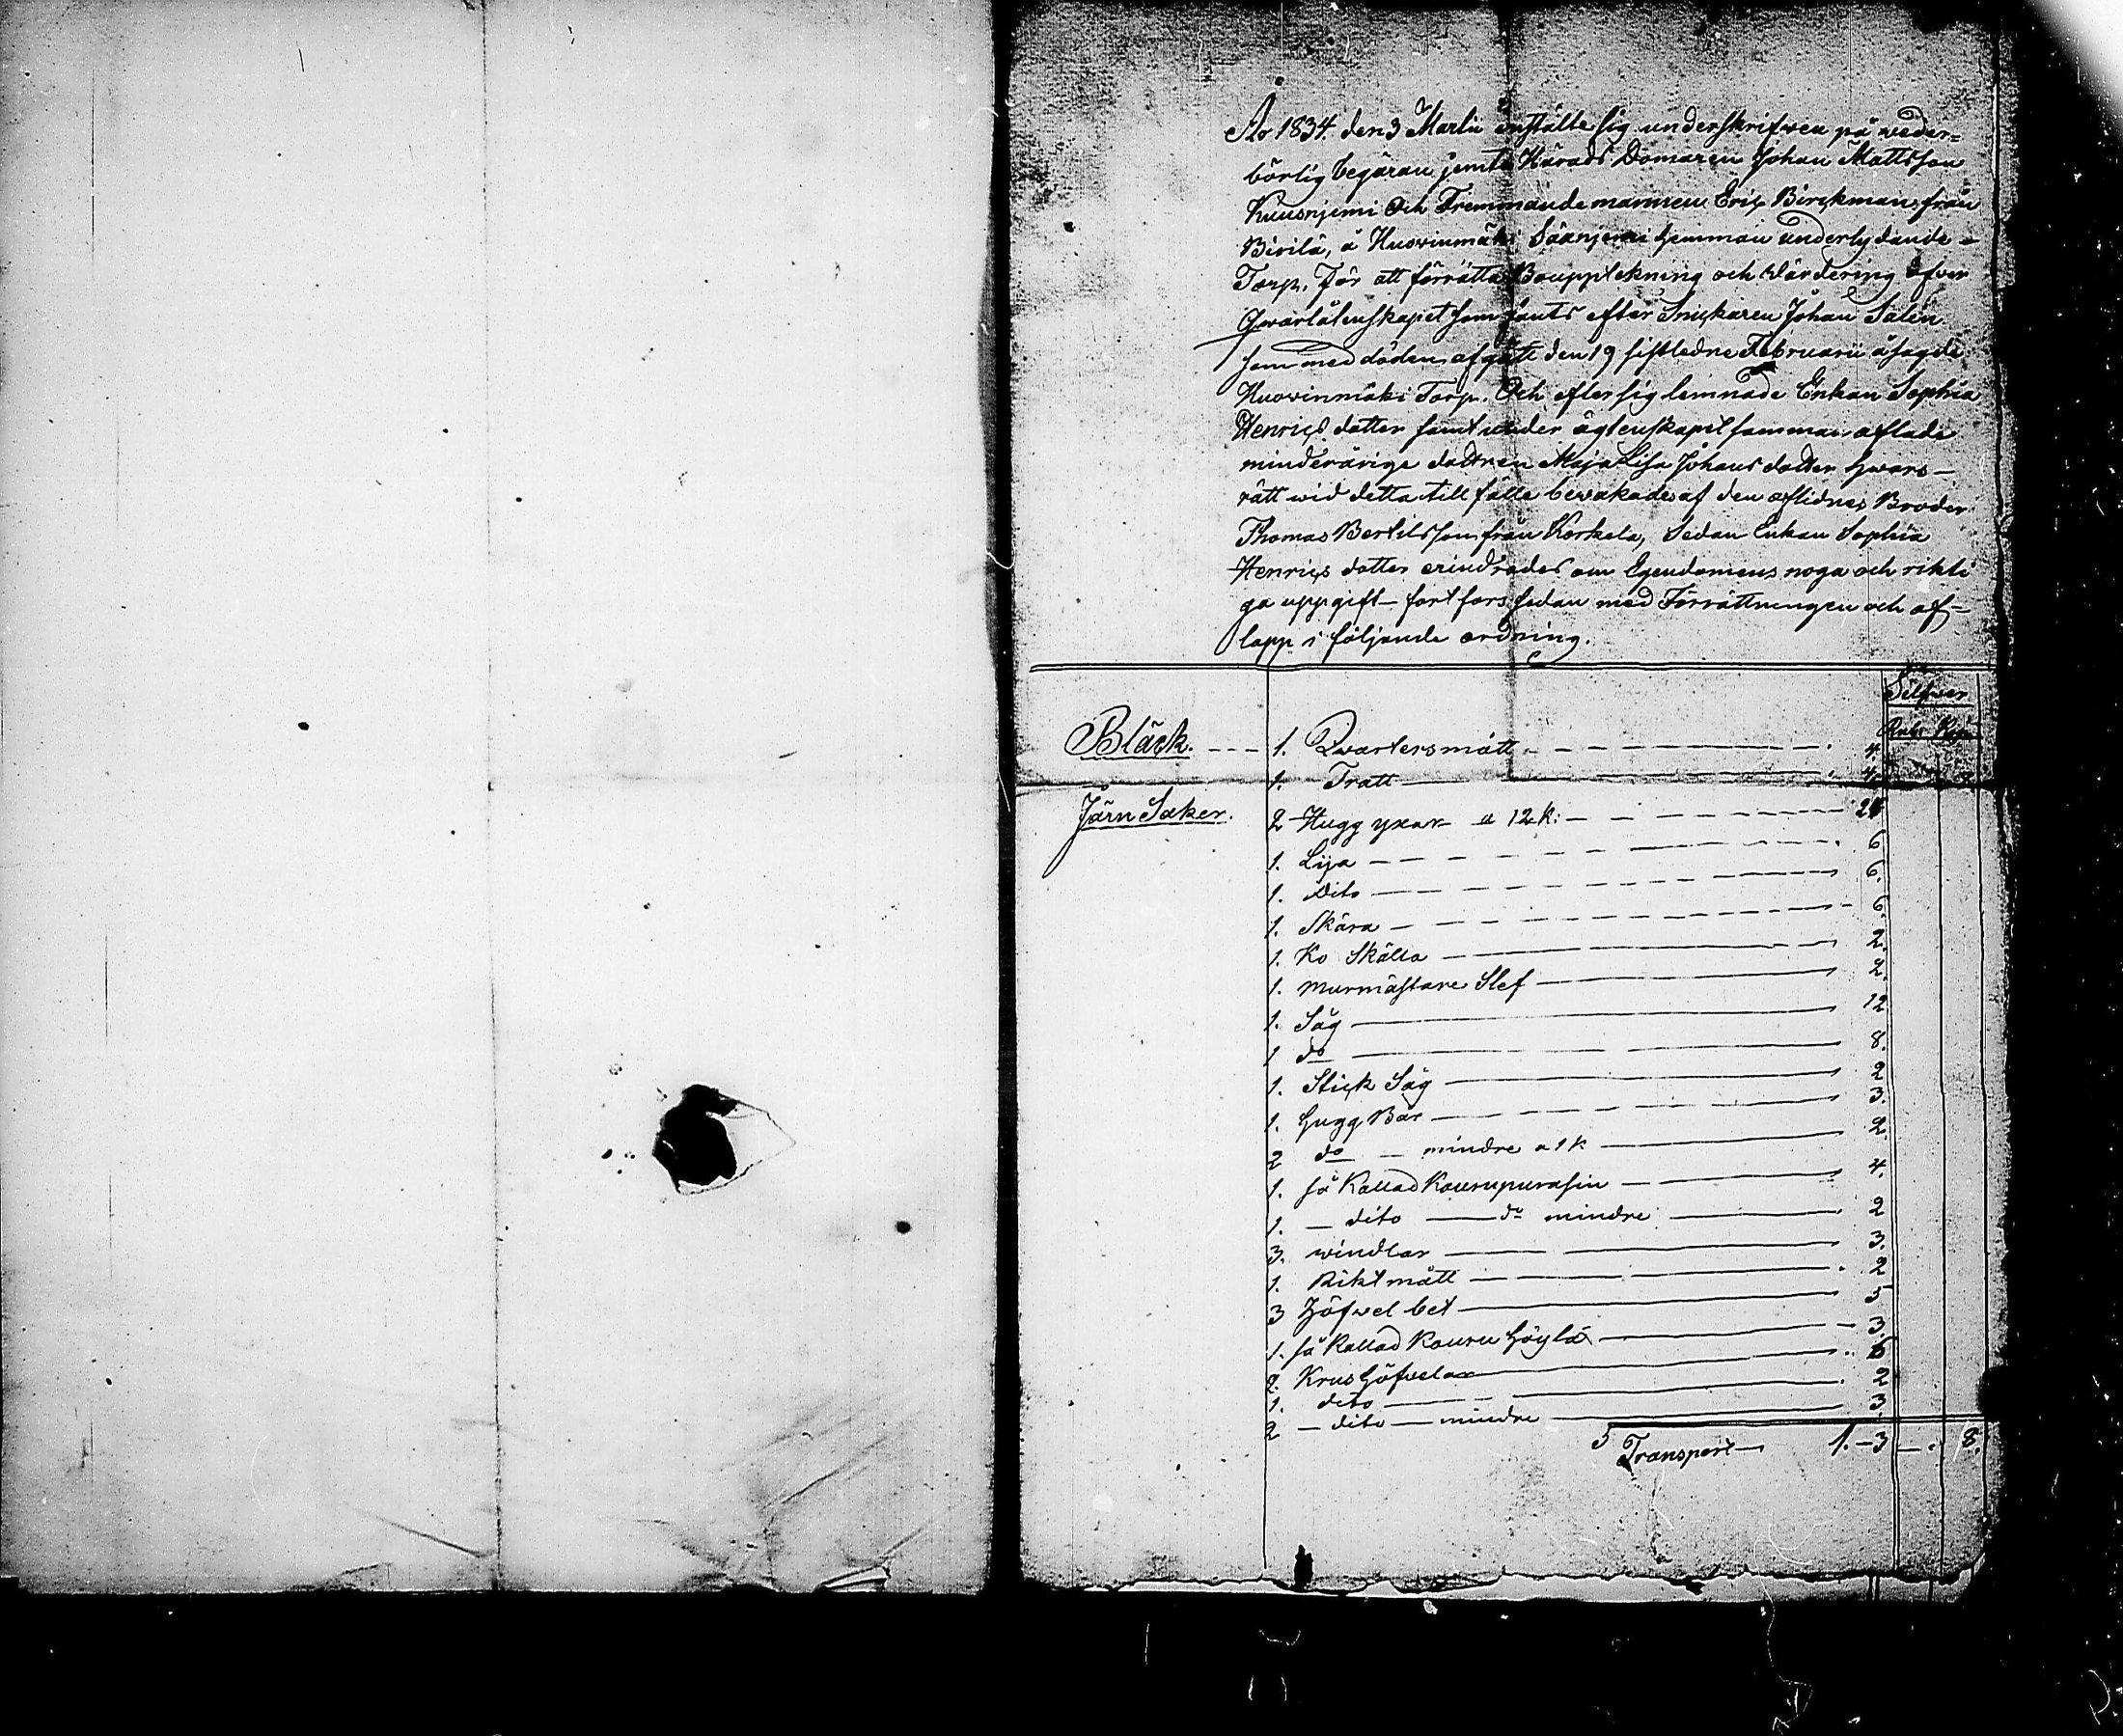 Ao 1834 den 3 Martii instälte sig underskrifven på veder=
börlig begäran jemte Härads Domaren Johan Mattsson
Kuusnjemi Och Fremmande mannen Eric Birckman från
Birilä, å Huovinmäki Säänjemi hemman underlydande
Torp. För att förrätta Boupptekning och Värdering öfver
Qvarlåtenskapet som fants efter Snickaren Johan Salén
som med döden afgått den 19 sistledne Februarii å sagde
Huovinmäki Torp. Och efter sig lemnade Enkan Sophia
Henrics dotter samt under ägtenskapet samman aflade
minderårige dottren Maja Lisa Johans dotter hvars-
rätt vid detta tillfälle bevakades af den aflidnes Broder
Thomas Bertilsson från Korkela, Sedan Enkan Sophia
Henrics dotter erindrades om Egendomens noga och rikti
ga uppgift fortfors sedan med Förrättningen och af-
lopp i följande ordning.
Silfver
Rub: Kop:
Bläck. 1. Qvartersmått 4.
1. Tratt 4.
Järn Saker. 2 Hugg yxar a 12 k: 24
1. Lija 6
1. Dito 6.
1. Skära 6.
1. Ko Skälla 2.
1. Murmästare Slef 2.
1. Såg 12
1 do 8.
1. Stick Såg 2
1. Hugg Bår 3.
2 do mindre a 1 k 2.
1. så Kallad Kourupurasin 4.
1. dito do mindre 2
3. vindlar 3.
1. Rikt mått 2
3 Höfvel bet 3
1. så Kallad Kouru Höylä 3.
2. Krus Höfvelar 6
1. dito 2
2 dito mindre 3.
Transport 1.-3 8.